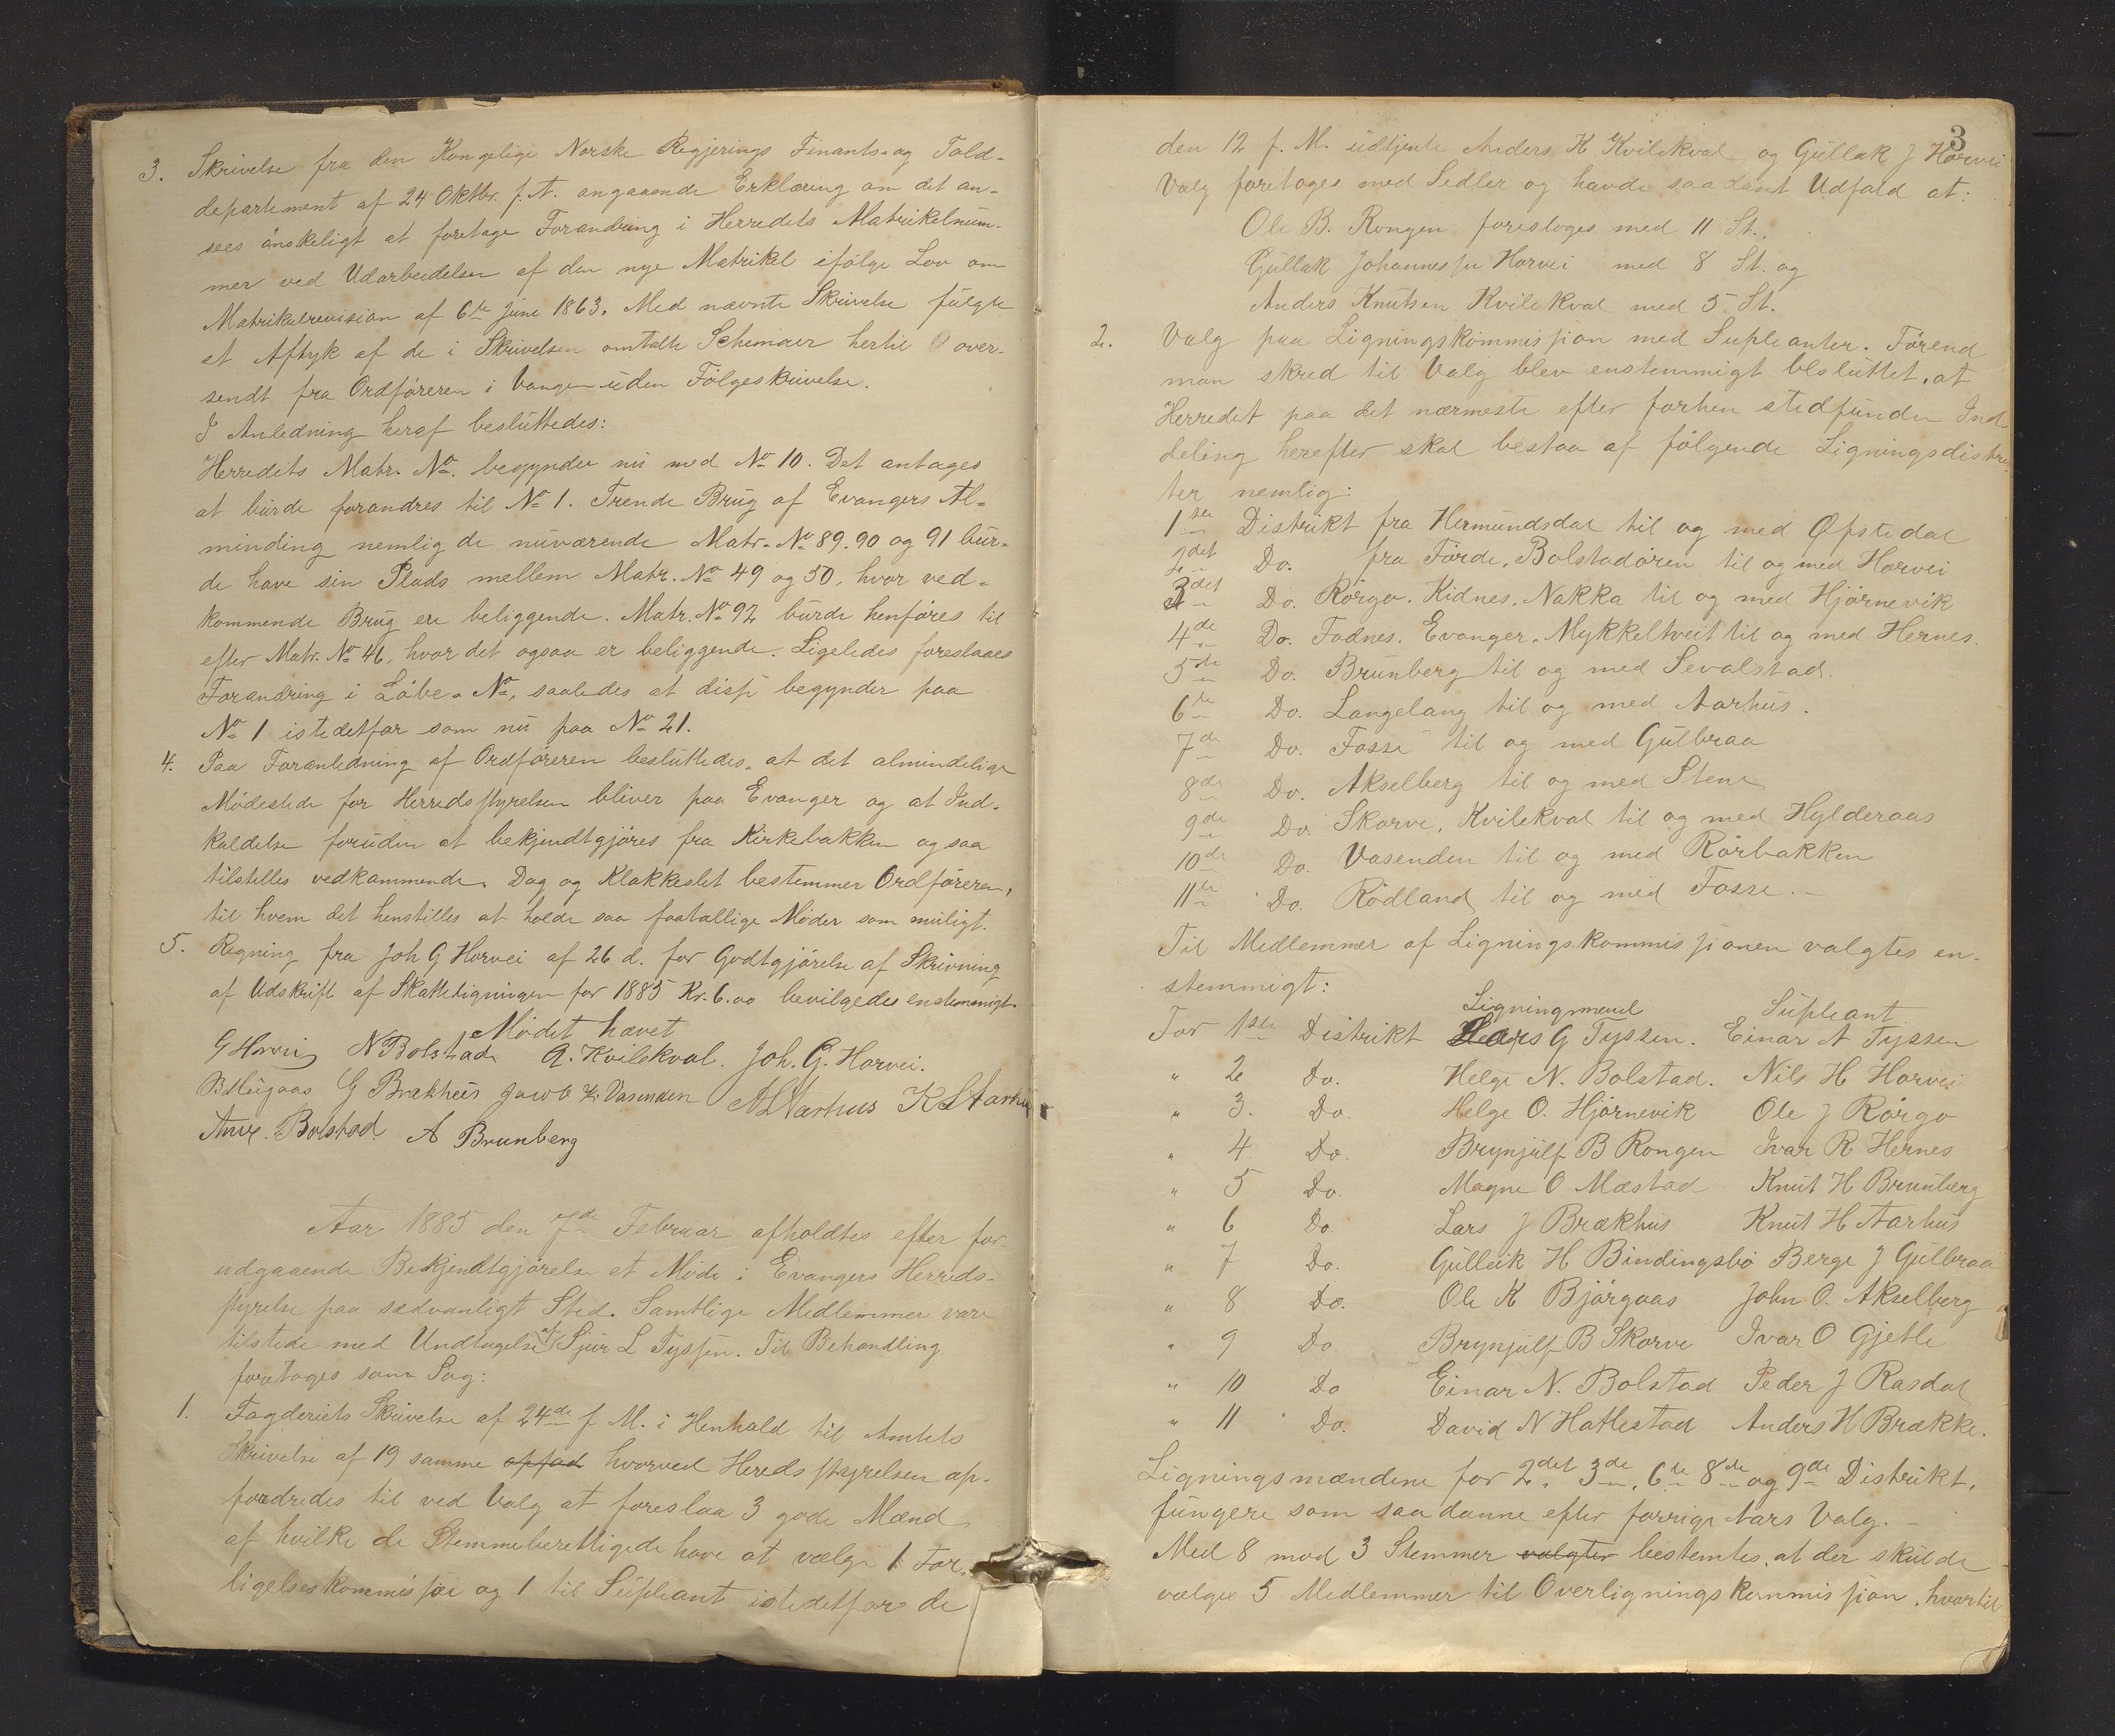 3. Skrivelse fra den Kongelige Norske Regjerings Finants- og Told-
departement af 24 Oktbr. f. A. angaaende Erklæring om det an-
sees ønskeligt at foretage Forandring i Herredets Matrikelnum-
mer ved Udarbeidelsen af den nye Matrikel ifølge Lov om
Matrikulrevision af 6te Juni 1863. Med nævnte Skrivelse fulgte
et Aftryk af de i Skrivelsen omtalte Schemaer hertil over-
sendt fra Ordføreren i Vangen uden Følgeskrivelse.
I Anledning heraf besluttedes:
Herredets Matr. No. begynder nu med No 10. Det antages
at burde forandres til No 1. Trende Brug af Evangers Al-
minding nemlig de nuværende Matr. No 89. 90 og 91 bur-
de have sin Plads mellem Matr. No 49 og 50, hvor ved-
kommende Brug er beliggende. Matr. No 92 burde henføres til
efter Matr. No 46, hvor det ogsaa er beliggende. Ligeledes foreslaaes
Forandring i Løbe-No, saaledes at disse begynder paa
No 1 istedetfor som nu paa No 21.
4. Paa Foranledning af Ordføreren besluttedes, at det almindelige
Mødested for Herredsstyrelsen bliver paa Evanger og at Ind-
kaldelse foruden at bekjendtgjøres fra Kirkebakken ogsaa
tilstilles vedkommende. Dag og Klokkeslet bestemmer Ordføreren,
til hvem det henstilles at holde saa faatallige Møder som muligt.
5. Regning fra Joh G Horvei af 26 d. for Godtgjørelse af Skrivning
af Udskrift af Skatteligningen for 1885 Kr. 6.00 bevilgedes enstemmigt.
Mødet hævet
G Horvei N Bolstad A. Kvilekval. Joh. G. Horvei.
G Brækhus Jacob K. Vasenden A L Aarhus K L Aarhus
Bolstad. A Brunberg
Aar 1885 den 7de Februar afholdtes efter for-
udgaaende Bekjendtgjørelse et Møde i Evangers Herreds-
styrelse paa sædvanligt Sted. Samtlige Medlemmer vare
tilstede med Undtagelse af Sjur L Tyssen. Til Behandling
foretages som Sag:
1. Fogderiets Skrivelse af 24de f. M. i Henhold til Amtets
Skrivelse af 19 samme hvorved Heredsstyrelsen op-
fordredes til ved Valg at foreslaa 3 gode Mænd
af hvilke de Stemmeberettigede have at vælge 1 For-
ligelseskommissær og 1 til Supleant istedetfor de
3
den 12 f. M. udtjente Anders K Kvilekval og Gullak J Horvei
Valg foretoges med Sedler og havde saadant Udfald at:
Ole B. Rongen foresloges med 11 St.,
Gullak Johannessen Horvei med 8 St. og
Anders Knutsen Kvilekval med 5 St.
2. Valg paa Ligningskommission med Supleanter. Førend
man skred til Valg blev enstemmigt besluttet, at
Herredet paa det nærmeste efter forhen stedfunden Ind-
deling herefter skal bestaa af følgende Ligningsdistrik-
ter nemlig:
1ste Distrikt fra Hermundsdal til og med Øfstedal
2det Do. fra Førde, Bolstadøren til og med Horvei
3det Do. Rørgo. Kidnes. Nakka til og med Hjørnevik
4de Do. Fadnes. Evanger. Mykkeltveit til og med Hernes.
5te Do. Brunberg til og med Sevalstad.
6te Do. Langeland til og med Aarhus.
7de Do. Fosse til og med Gulbraa
8de Do. Akselberg til og med Stene
9de Do. Skorve, Kvilekval til og med Hylderaas
10de Do. Vasenden til og med Rørbakken
11te Do. Rødland til og med Fosse. -
Til Medlemmer af Ligningskommissionen valgtes en-
stemmigt:
Ligningsmænd Supleant
For 1ste Distrikt Lars G Tyssen. Einar A Tyssen
" 2 Do. Helge N. Bolstad. Nils H Horvei
" 3. Do. Helge O. Hjørnevik Ole J Rørgo
" 4. Do. Brynjulf B Rongen Ivar R Hernes
" 5 Do. Magne O Mæstad Knut H Brunberg
" 6 Do. Lars J Brækhus Knut H Aarhus
" 7 Do. Gulleik H Bindingsbø Berge J Gulbraa
" 8 Do. Ole K Bjørgaas John O. Akselberg
" 9 Do. Brynjulf B Skorve Ivar O Gjetle
" 10 Do Einar N. Bolstad Peder J Rasdal
" 11 Do. David N Hatlestad Anders H Brække.
Ligningsmændene for 2det, 3de, 6te 8de og 9de Distrikt,
fungere som saadanne efter forrige Aars Valg. -
Med 8 mod 3 Stemmer valgtes bestemtes, at der skulde
vælges 5 Medlemmer til Overligningskommission, hvortil